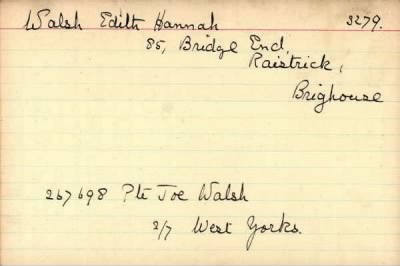 Walsh Edith Hannah 3279.
85, Bridge End,
Raistrick,
Brighouse
267698 Pte Joe Walsh
2/7 West Yorks.